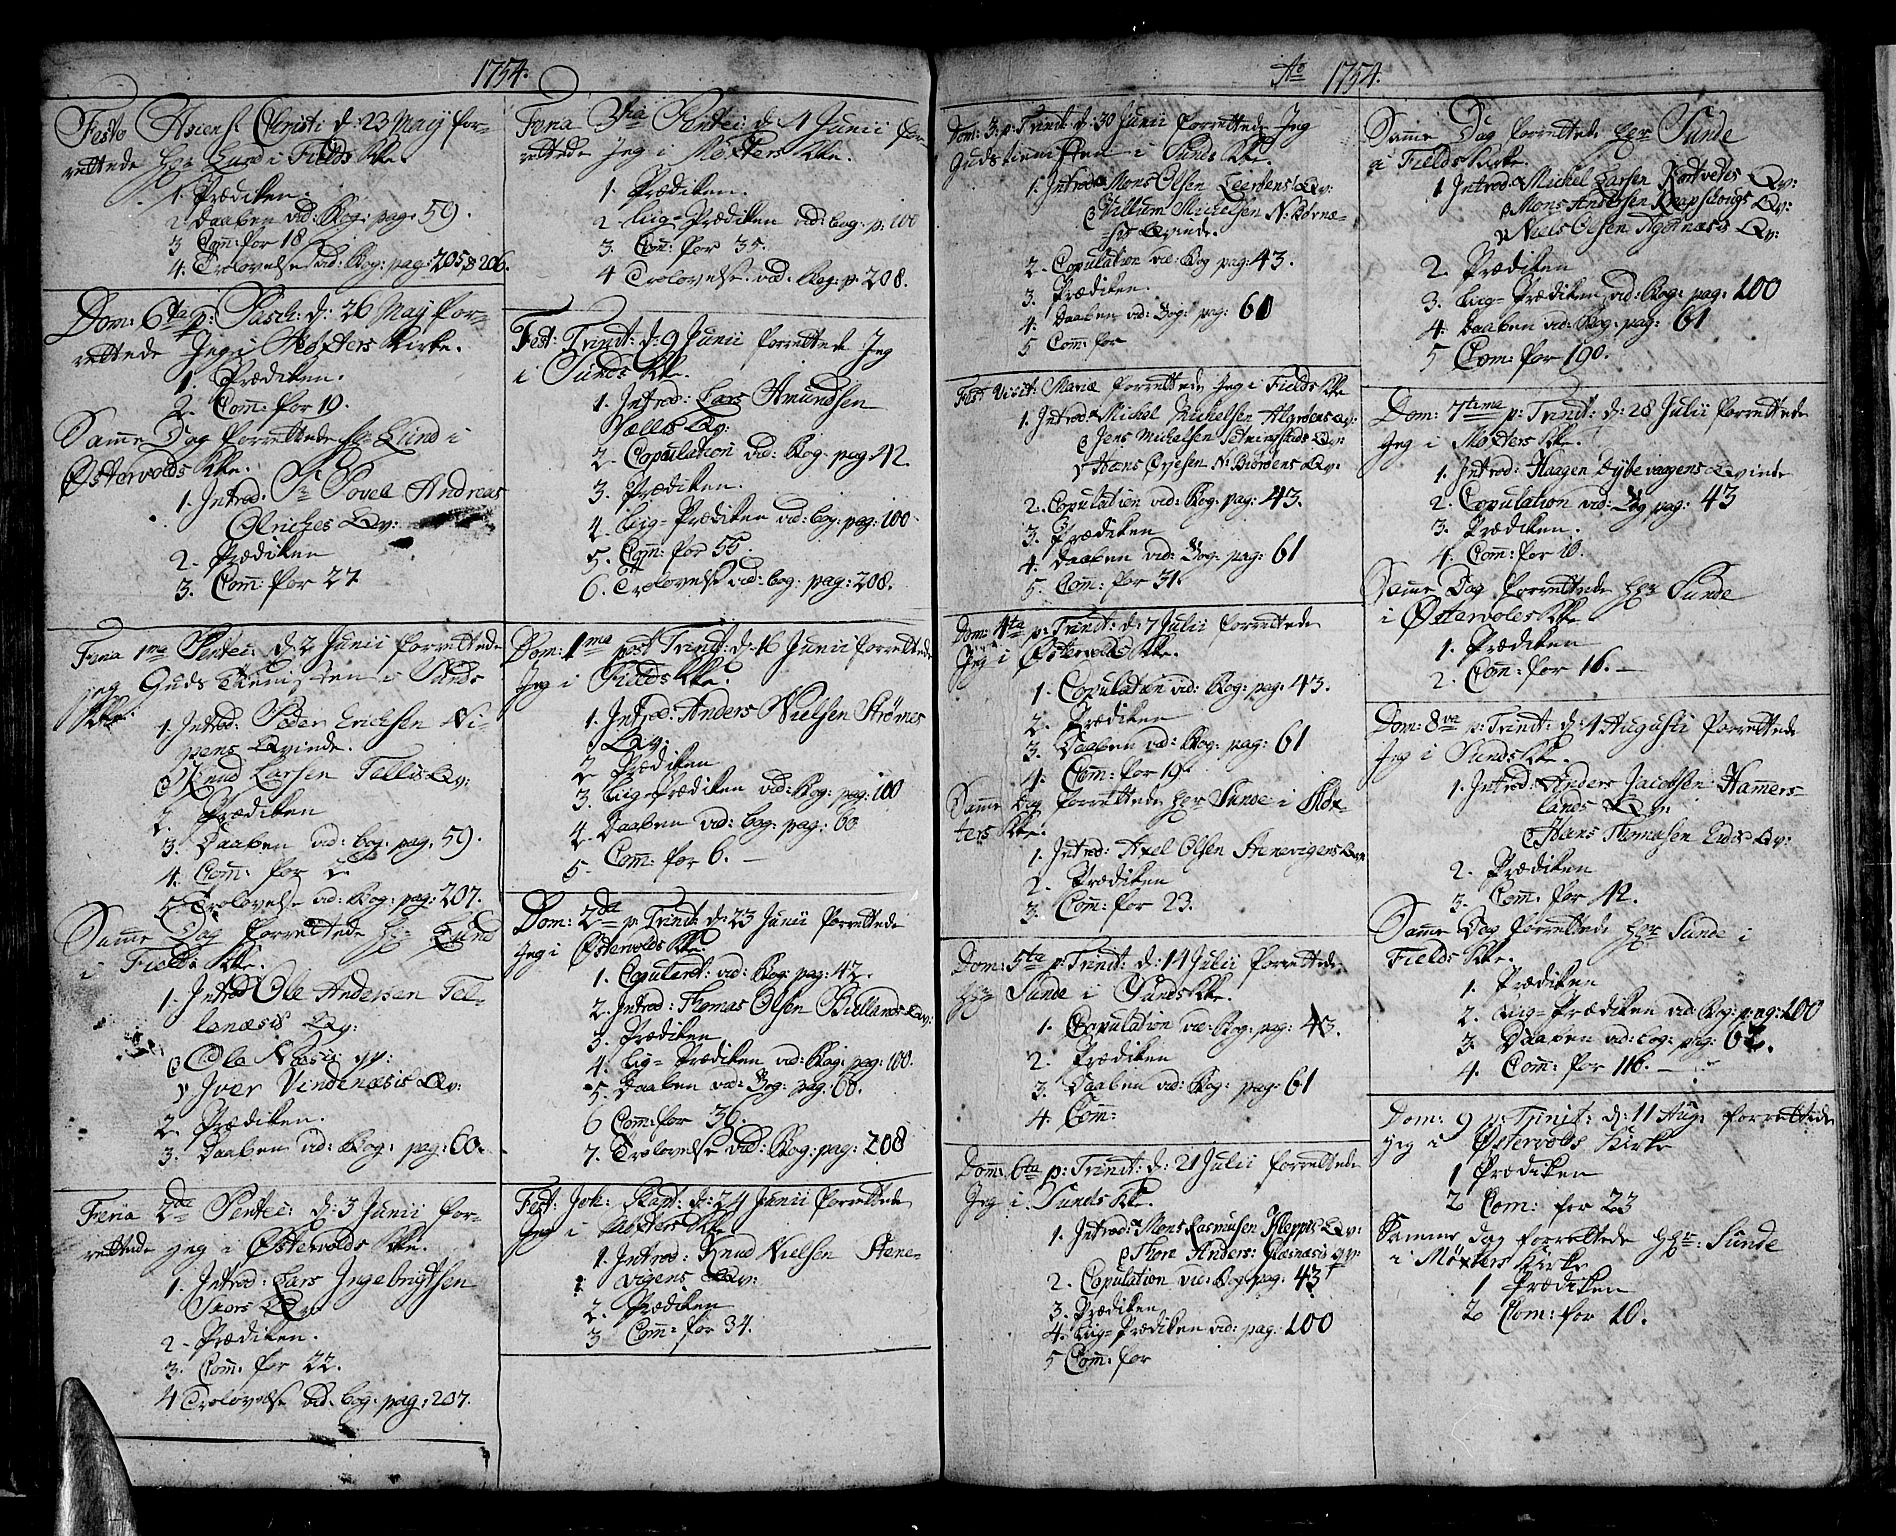 1754.
Festo Ascens: Christi d: 23 Maij for-
rettede Hr: Lund i Fields Kke.
1. Prædiken.
2. Daaben vid: Bog: pag: 59.
3. Com: for 18
4. Trolovelse vid: Bog: pag: 205 & 206.
Dom: 6ta p: Pasch: d: 26 Maij for-
rettede Jeg i Møxters Kirke.
1. Prædiken.
2. Com: for 19.
Samme Dag forrettede Hr: Lund i
Østervolds Kke.
1. Introd: Sr Povel Andreas
Olriches Qv:
2. Prædiken
3. Com: for 27
Feria 1ma Pentec: d: 2 Junii forrettede
jeg Guds Tienisten i Sunds
Kke.
1. Introd: Peder Erichsen Vi-
pens Qvinde.
Knud Larsen Tellis Qv:
2. Prædiken
3. Daaben vid: bog: pag: 59.
4. Com: for
5. Trolovelse vid: Bog: pag: 207.
Samme Dag forrettede Hr: Lund
i Fields Kke.
1. Introd Ole Andersen Tel-
lanæsis Qv:
Ole Næsis qv:
Iver Vindenæsis Qv:
2. Prædiken.
3. Daaben vid: Bog: pag: 60.
Feria 2da Pentec: d: 3 Junii for-
rettede jeg i Østervolds Kke.
1. Introd: Lars Ingebrigtsen
Skors Qv
2. Prædiken.
3. Com: for 22.
4 Trolovelse vid: bog: pag: 207.
Feria 3tia Pentec: d: 4 Junii for-
rettede Jeg i Møxters Kke.
1. Prædiken.
2. Liig-Prædiken vid: bog: p: 100
3. Com: for 35.
4 Trolovelse vid: Bog: p: 208.
Fest: Trinit: d: 9 Junii forrettede Jeg
i Sunds Kke.
1. Introd: Lars Amundsen
Vællis Qv:
2. Copulation vid: Bog: pag: 42.
3. Prædiken.
4. Liig-Prædiken vid: bog: pag: 100.
5. Com: for 55.
6. Trolovelse vid: bog: pag: 208.
Dom: 1ma post Trinit: d: 16 Junii forrettede
Jeg i Fields Kke.
1. Introd: Anders Nielsen Strømes
Qv:
2. Prædiken
3. Liig-Prædiken vid: Bog: pag: 100
4. Daaben vid: bog: pag: 60
5. Com: for 6.
Dom: 2da p: Trinit: d: 23 Junii forrettede
Jeg i Østervolds Kke.
1. Copuleret: vid: Bog: pag: 42.
2. Introd: Thomas Olsen Biellands Qv:
3. Prædiken
4. Liig-Prædiken vid: Bog: pag: 100.
5. Daaben vid: Bog: pag: 60.
6 Com: for 36.
7. Trolovelse vid: Bog: pag: 208
Fest: Joh: Bapt: d: 24 Junii forrettede
Jeg i Møxters Kke
1. Introd: Knud Nielsen Stene-
vigens Qv:
2. Prædiken
3 Com: for 34.
Ao 1754.
Dom: 3. p: Trinit: d: 30 Junii forrettede Jeg
Gudstienisten i Sunds Kke.
1. Introd: Mons Olsen Qv:
Villum Michelsen N: Børnæ-
sis Qvinde.
2. Copulation vid: Bog pag: 43.
3. Prædiken.
4. Daaben vid: Bog: pag: 60
5 Com: for
Fest Visit: Mariæ forrettede Jeg i Fields Kke
1. Introd: Michel Michelsen Qv:
Jens Michelsen Qv:
Hans N: Qv:
2. Copulation vid: Bog: pag: 43.
3. Prædiken
4. Daaben vid: Bog: pag: 61
5. Com: for 31.
Dom: 4ta p: Trinit: d: 7 Julii forrettede
Jeg i Østervolds Kke.
1. Copulation vid: Bog: pag: 43.
2. Prædiken
3. Daaben vid: Bog: pag: 61
4. Com: for 19.
Samme Dag forrettede Hr Sunde i Møx-
ters Kke.
1. Introd: Axel Olsen Stenevigens Qv:
2. Prædiken
3. Com: for 23.
Dom: 5ta p: Trinit: d: 14 Julii forrettede
Hr: Sunde i Sunds Kke.
1. Copulation vid: Bog: pag: 43.
2. Prædiken
3. Daaben vid: Bog: pag: 61
4. Com:
Dom: 6ta p: Trinit: d: 21 Julii forrettede
Jeg i Sunds Kke.
1. Introd: Mons Rasmusen Kleppis Qv:
Thore Anders: qv:
2. Copulation vid: Bog: pag: 43
3. Prædiken
4. Liig-Prædiken vid: pag: 100
5 Com: for
Samme Dag forrettede Hr Sunde
i Fields Kirke.
1 Introd: Michel Larsen Qv:
Mons Andersen Knapskougs Qv:
Niels Olsen Qv:
2. Prædiken
3. Liig-Prædiken vid: Bog: pag: 100
4. Daaben vid: Bog: pag: 61
5 Com: for 190.
Dom: 7tima p: Trinit: d: 28 Julii forrettede
Jeg i Møxters Kke.
1. Introd: Haagen Dybevaagens Qvinde
2. Copulation vid: Bog pag: 43
3. Prædiken.
4. Com: for 10.
Samme Dag forrettede Hr Sunde
i Østervolds Kke
1. Prædiken
2. Com: for 16.
Dom: 8va p: Trinit: d: 4 Augusti forrettede
Jeg i Sunds Kke.
1. Introd: Anders Jacobsen Hamers-
lands Qv:
Hans Qv:
2. Prædiken
3. Com: for 42.
Samme Dag forrettede Hr Sunde i
Fields Kke.
1. Prædiken
2. Liig-Prædiken vid: Bog: pag: 100
3. Daaben vid: bog: pag: 62.
4. Com: for 116.
Dom: 9 p: Trinit: d: 11 Aug: forrettede
jeg i Østervolds Kirke
1 Prædiken
2 Com: for 23
Samme Dag forrettede Hr: Sunde
i Møxters Kirke
1 Prædiken
2 Com: for 10.